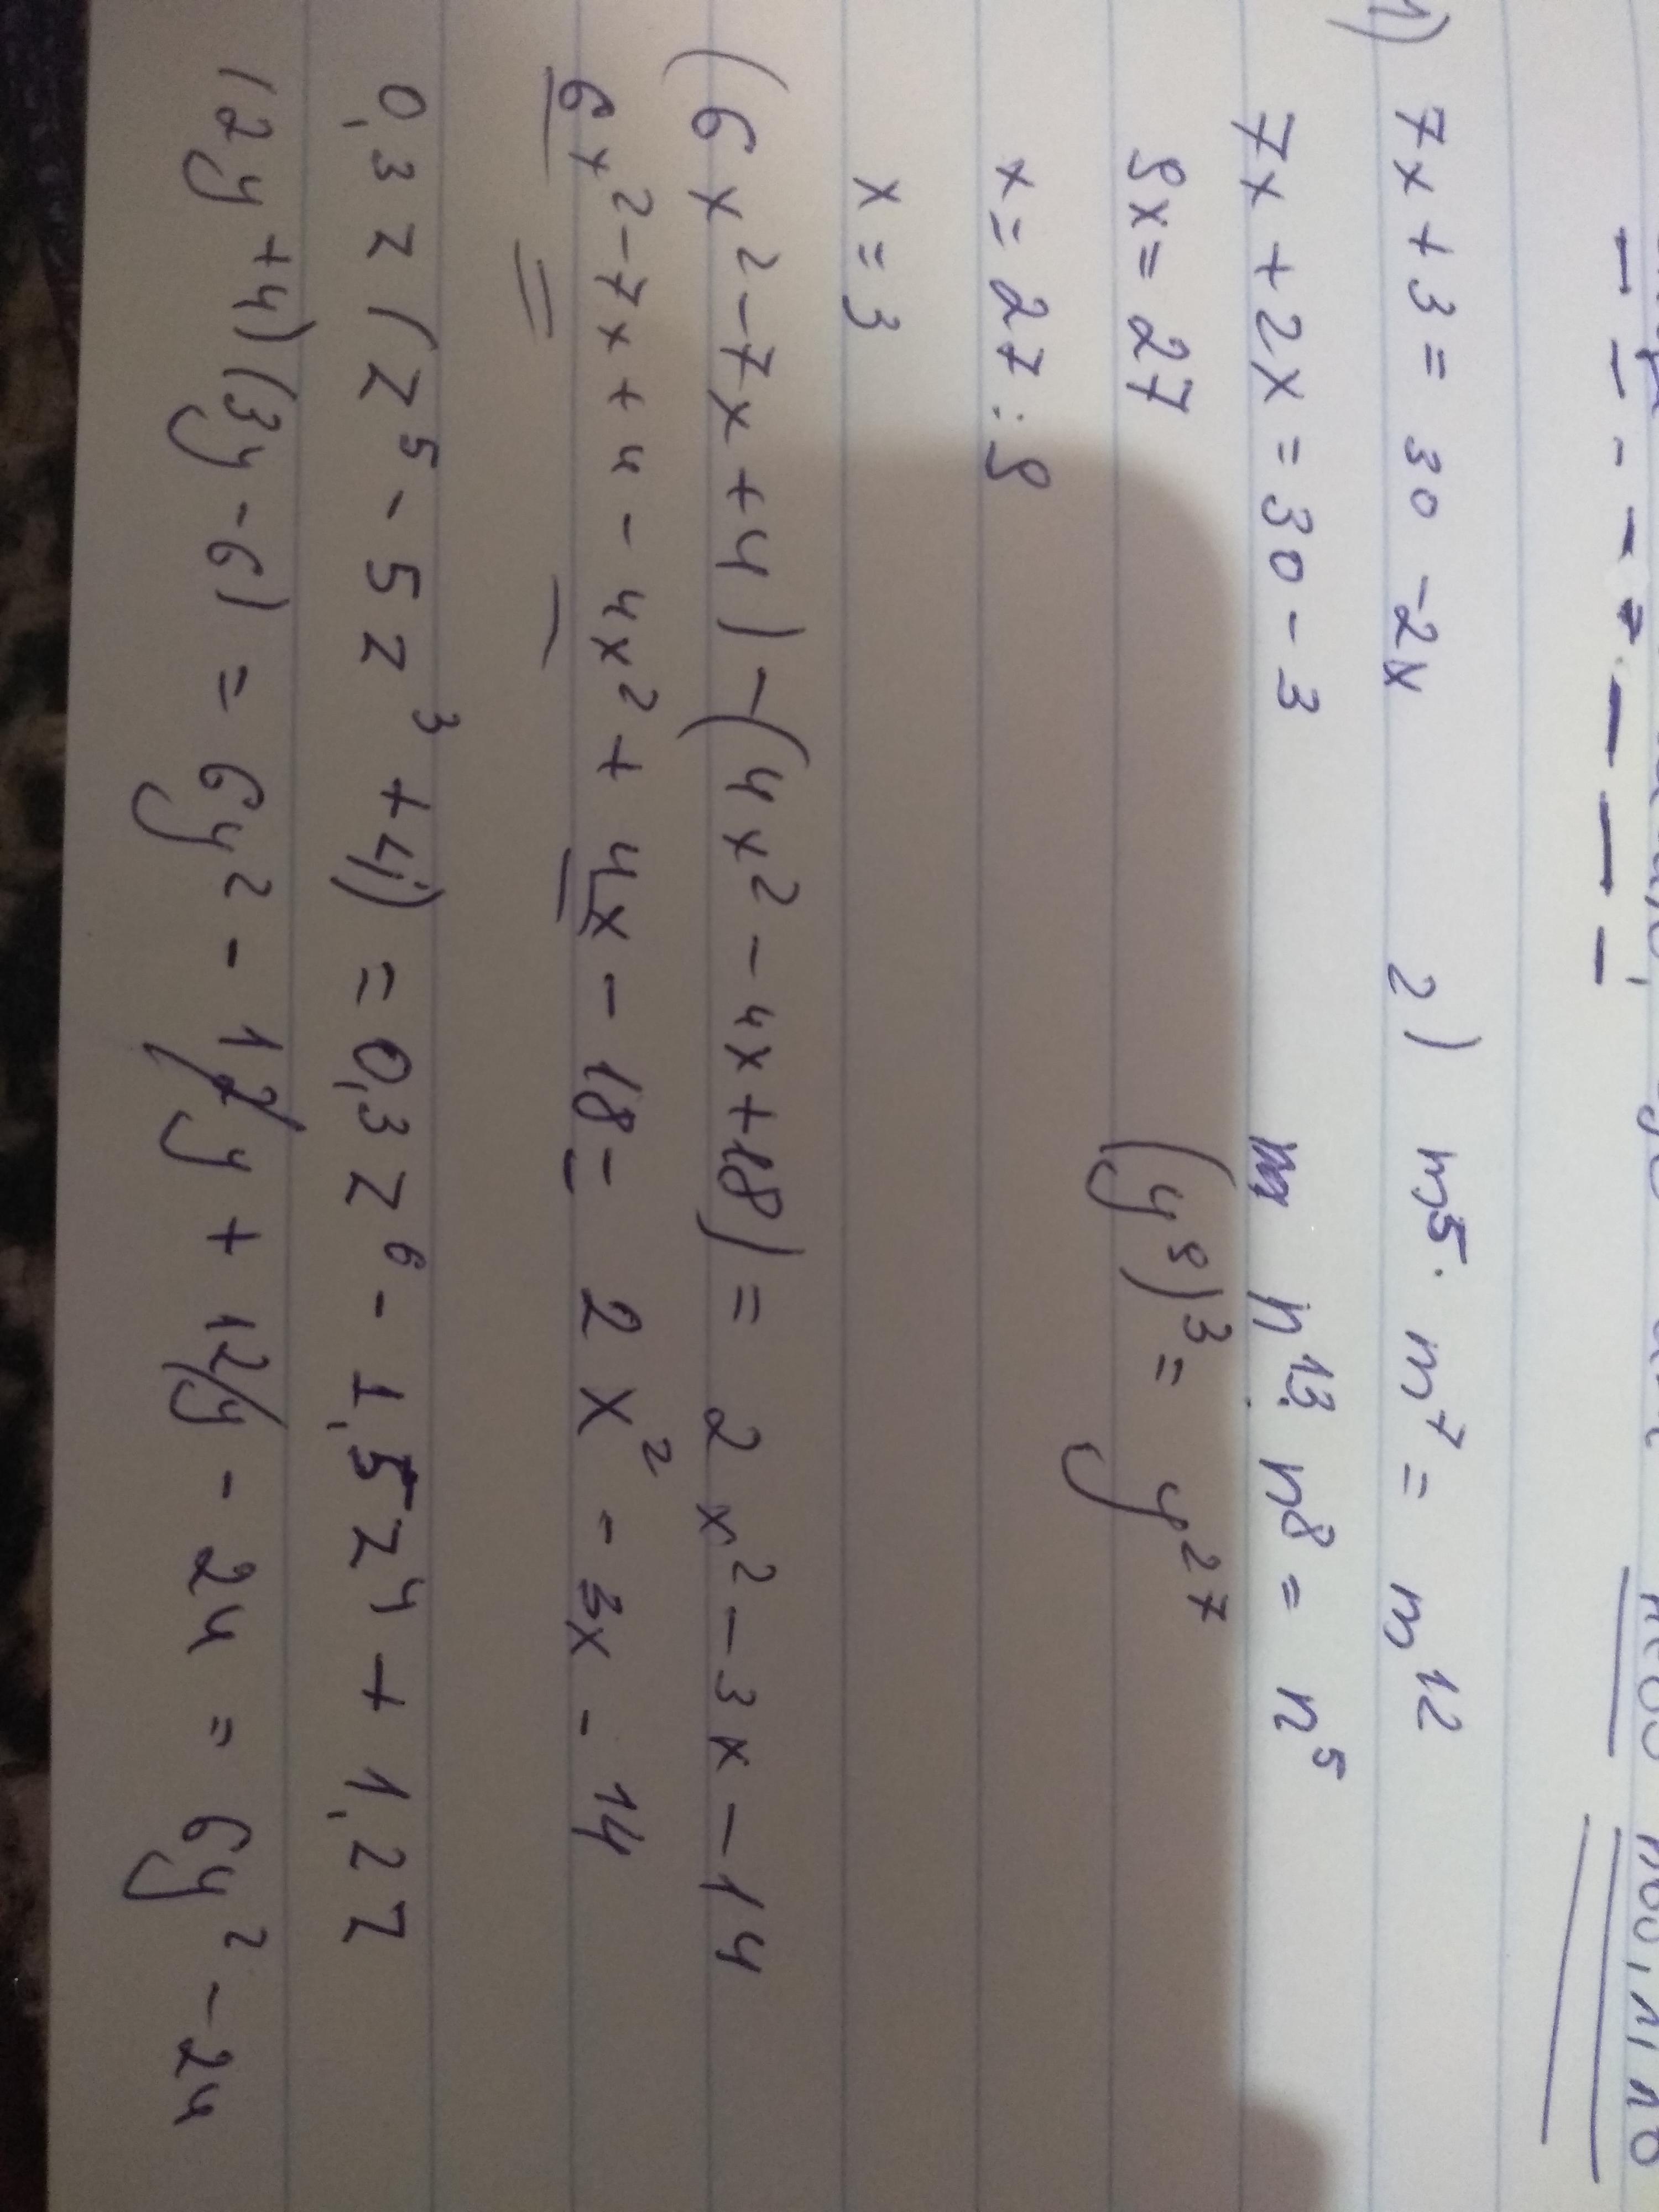 1) 7x + 3 = 30 - 2x
7x + 2x = 30 - 3
9x = 27
x = 27 : 9
x = 3
2) m⁵ · m⁷ = m¹²
n¹³ : n⁸ = n⁵
(y⁹)³ = y²⁷
(6x² - 7x + 4) - (4x² - 4x + 18) = 2x² - 3x - 14
6x² - 7x + 4 - 4x² + 4x - 18 = 2x² - 3x - 14
0,3z (z⁵ - 5z³ + 4) = 0,3z⁶ - 1,5z⁴ + 1,2z
(2y + 4) (3y - 6) = 6y² - 12y + 12y - 24 = 6y² - 24